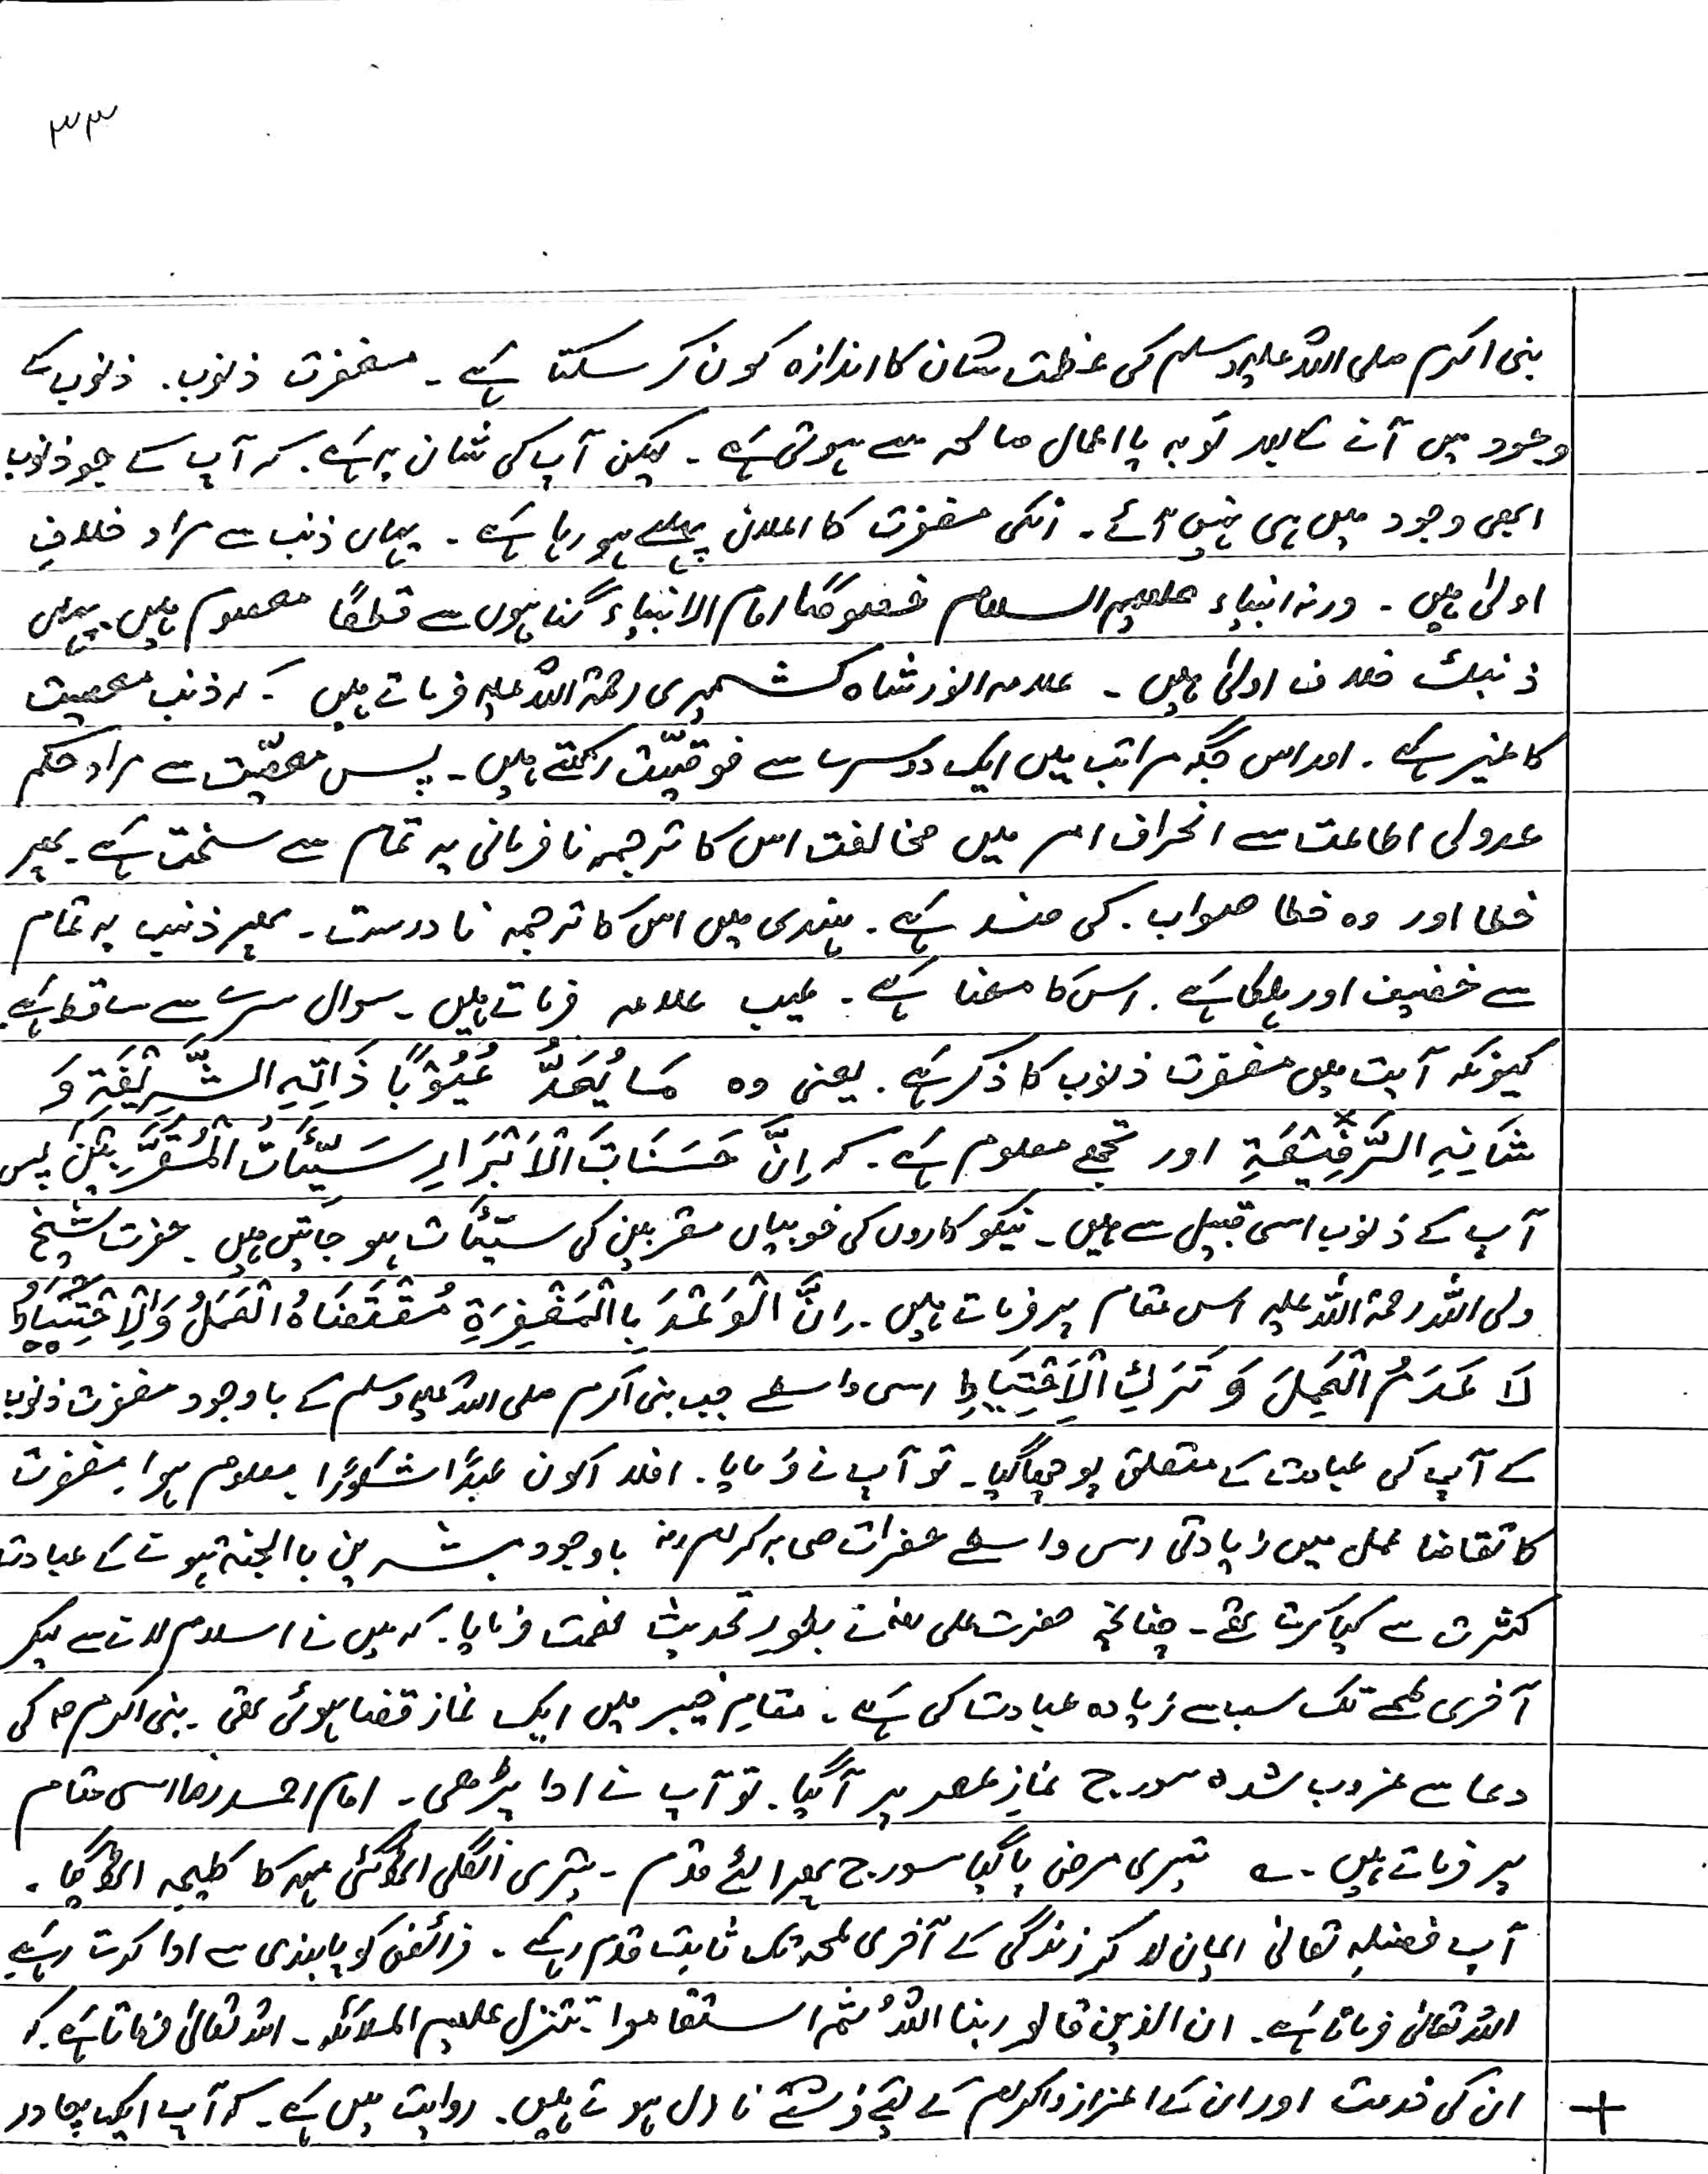 ۳۳
نبی اکرم صلی اللہ علیہ وسلم کی عظمت شان کا اندازہ کون کر سکتا ہے ۔ مغفرت ذنوب ۔ ذنوب کے
وجود میں آنے کے بعد توبہ یا اعمال صالحہ سے ہوتی ہے ۔ لیکن آپ کی شان یہ ہے ۔ کہ آپ کے جو ذنوب
ابھی وجود میں ہی نہیں آئے ۔ انکی مغفرت کا اعلان پہلے ہو رہا ہے ۔ یہاں ذنب سے مراد خلافِ
اولیٰ ہیں ۔ ورنہ انبیاء علیہم السلام خصوصًا امام الانبیاء گناہوں سے قطعًا معصوم ہیں ۔ یہاں
ذنبك خلاف اولیٰ ہیں ۔ علامہ انور شاہ کشمیری رحمۃ اللہ علیہ فرماتے ہیں ۔ کہ ذنب معصیت
کا غیر ہے ۔ اور اس جگہ مراتب ہیں ایک دوسرے سے فوقیّت رکھتے ہیں ۔ پس معصیّت سے مراد حکم
عدولی اطاعت سے انحراف امر میں مخالفت اس کا ترجمہ نافرمانی یہ تمام سے سخت ہے ۔ پھر
خطا اور وہ خطا صواب ۔ کی ضد ہے ۔ ہندی میں اس کا ترجمہ نا درست ۔ پھر ذنب یہ تمام
سے خفیف اور ہلکا ہے ۔ اس کا معنا ہے ۔ عیب علامہ فرماتے ہیں ۔ سوال سرے سے ساقط ہے ۔
کیونکہ آیت میں مغفرت ذنوب کا ذکر ہے ۔ یعنی وہ مَا یُعَدُّ عُیُوْبًا ذَاتِہِ الشَّرِیْفَۃِ وَ
شَانِہِ الرَّفِیْعَۃِ اور تجھے معلوم ہے ۔ کہ اِنَّ حَسَنَاتِ الْاَبْرَارِ سَیِّئَاتُ الْمُقَرَّبِیْنَ پس
آپ کے ذنوب اسی قبیل سے ہیں ۔ نیکو کاروں کی خوبیاں مقربین کی سیّئات ہو جاتیں ہیں ۔ حضرت شیخ
ولی اللہ رحمۃ اللہ علیہ اس مقام پر فرماتے ہیں ۔ اِنَّ الْوَعْدَ بِالْمَغْفِرَۃِ مُقْتَضَاہُ الْعَمَلُ وَالْاِحْتِیَاطُ
لَا عَدَمُ الْعَمَلِ وَ تَرْكِ الْاِحْتِیَاطِ اسی واسطے جب نبی اکرم صلی اللہ علیہ وسلم کے باوجود مغفرت ذنوب
کے آپ کی عبادت کے متعلق پوچھا گیا ۔ تو آپ نے فرمایا ۔ افلا اکون عبدًا شکورًا معلوم ہوا ۔ مغفرت
کا تقاضا عمل میں زیادتی اس واسطے حضرات صحابہ کرام رضہ باوجود مبشرین بالجنۃ ہونے کے عبادت
کثرت سے کیا کرتے تھے ۔ چنانچہ حضرت علی رضہ نے بطور تحدیث نعمت فرمایا ۔ کہ میں نے اسلام لانے سے لیکر
آخری لمحے تک سب سے زیادہ عبادت کی ہے ۔ مقامِ خیبر میں ایک نماز قضا ہوئی تھی ۔ نبی اکرم ؐ کی
دعا سے غروب شدہ سورج نمازِ عصر پر آ گیا ۔ تو آپ نے ادا پڑھی ۔ امام احمد رضا اسی مقام
پر فرماتے ہیں ۔ ؎ تیری مرضی پا گیا سورج پھرا الٹے قدم ۔ تیری انگلی اٹھ گئی مہہ کا کلیجہ
آپ بفضلہ تعالیٰ ایمان لا کر زندگی کے آخری لمحہ تک ثابت قدم رہے ۔ فرائض کو پابندی سے ادا کرتے رہے
اللہ تعالیٰ فرماتا ہے ۔ ان الذین قالو ربنا اللہُ ثم استقاموا تتنزل علیہم الملائکہ ۔ اللہ تعالیٰ فرماتا ہے ۔ کہ
ان کی خدمت اور ان کے اعزاز و اکرام کے لیے فرشتے نازل ہوتے ہیں ۔ روایت میں ہے ۔ کہ آپ ایک چادر